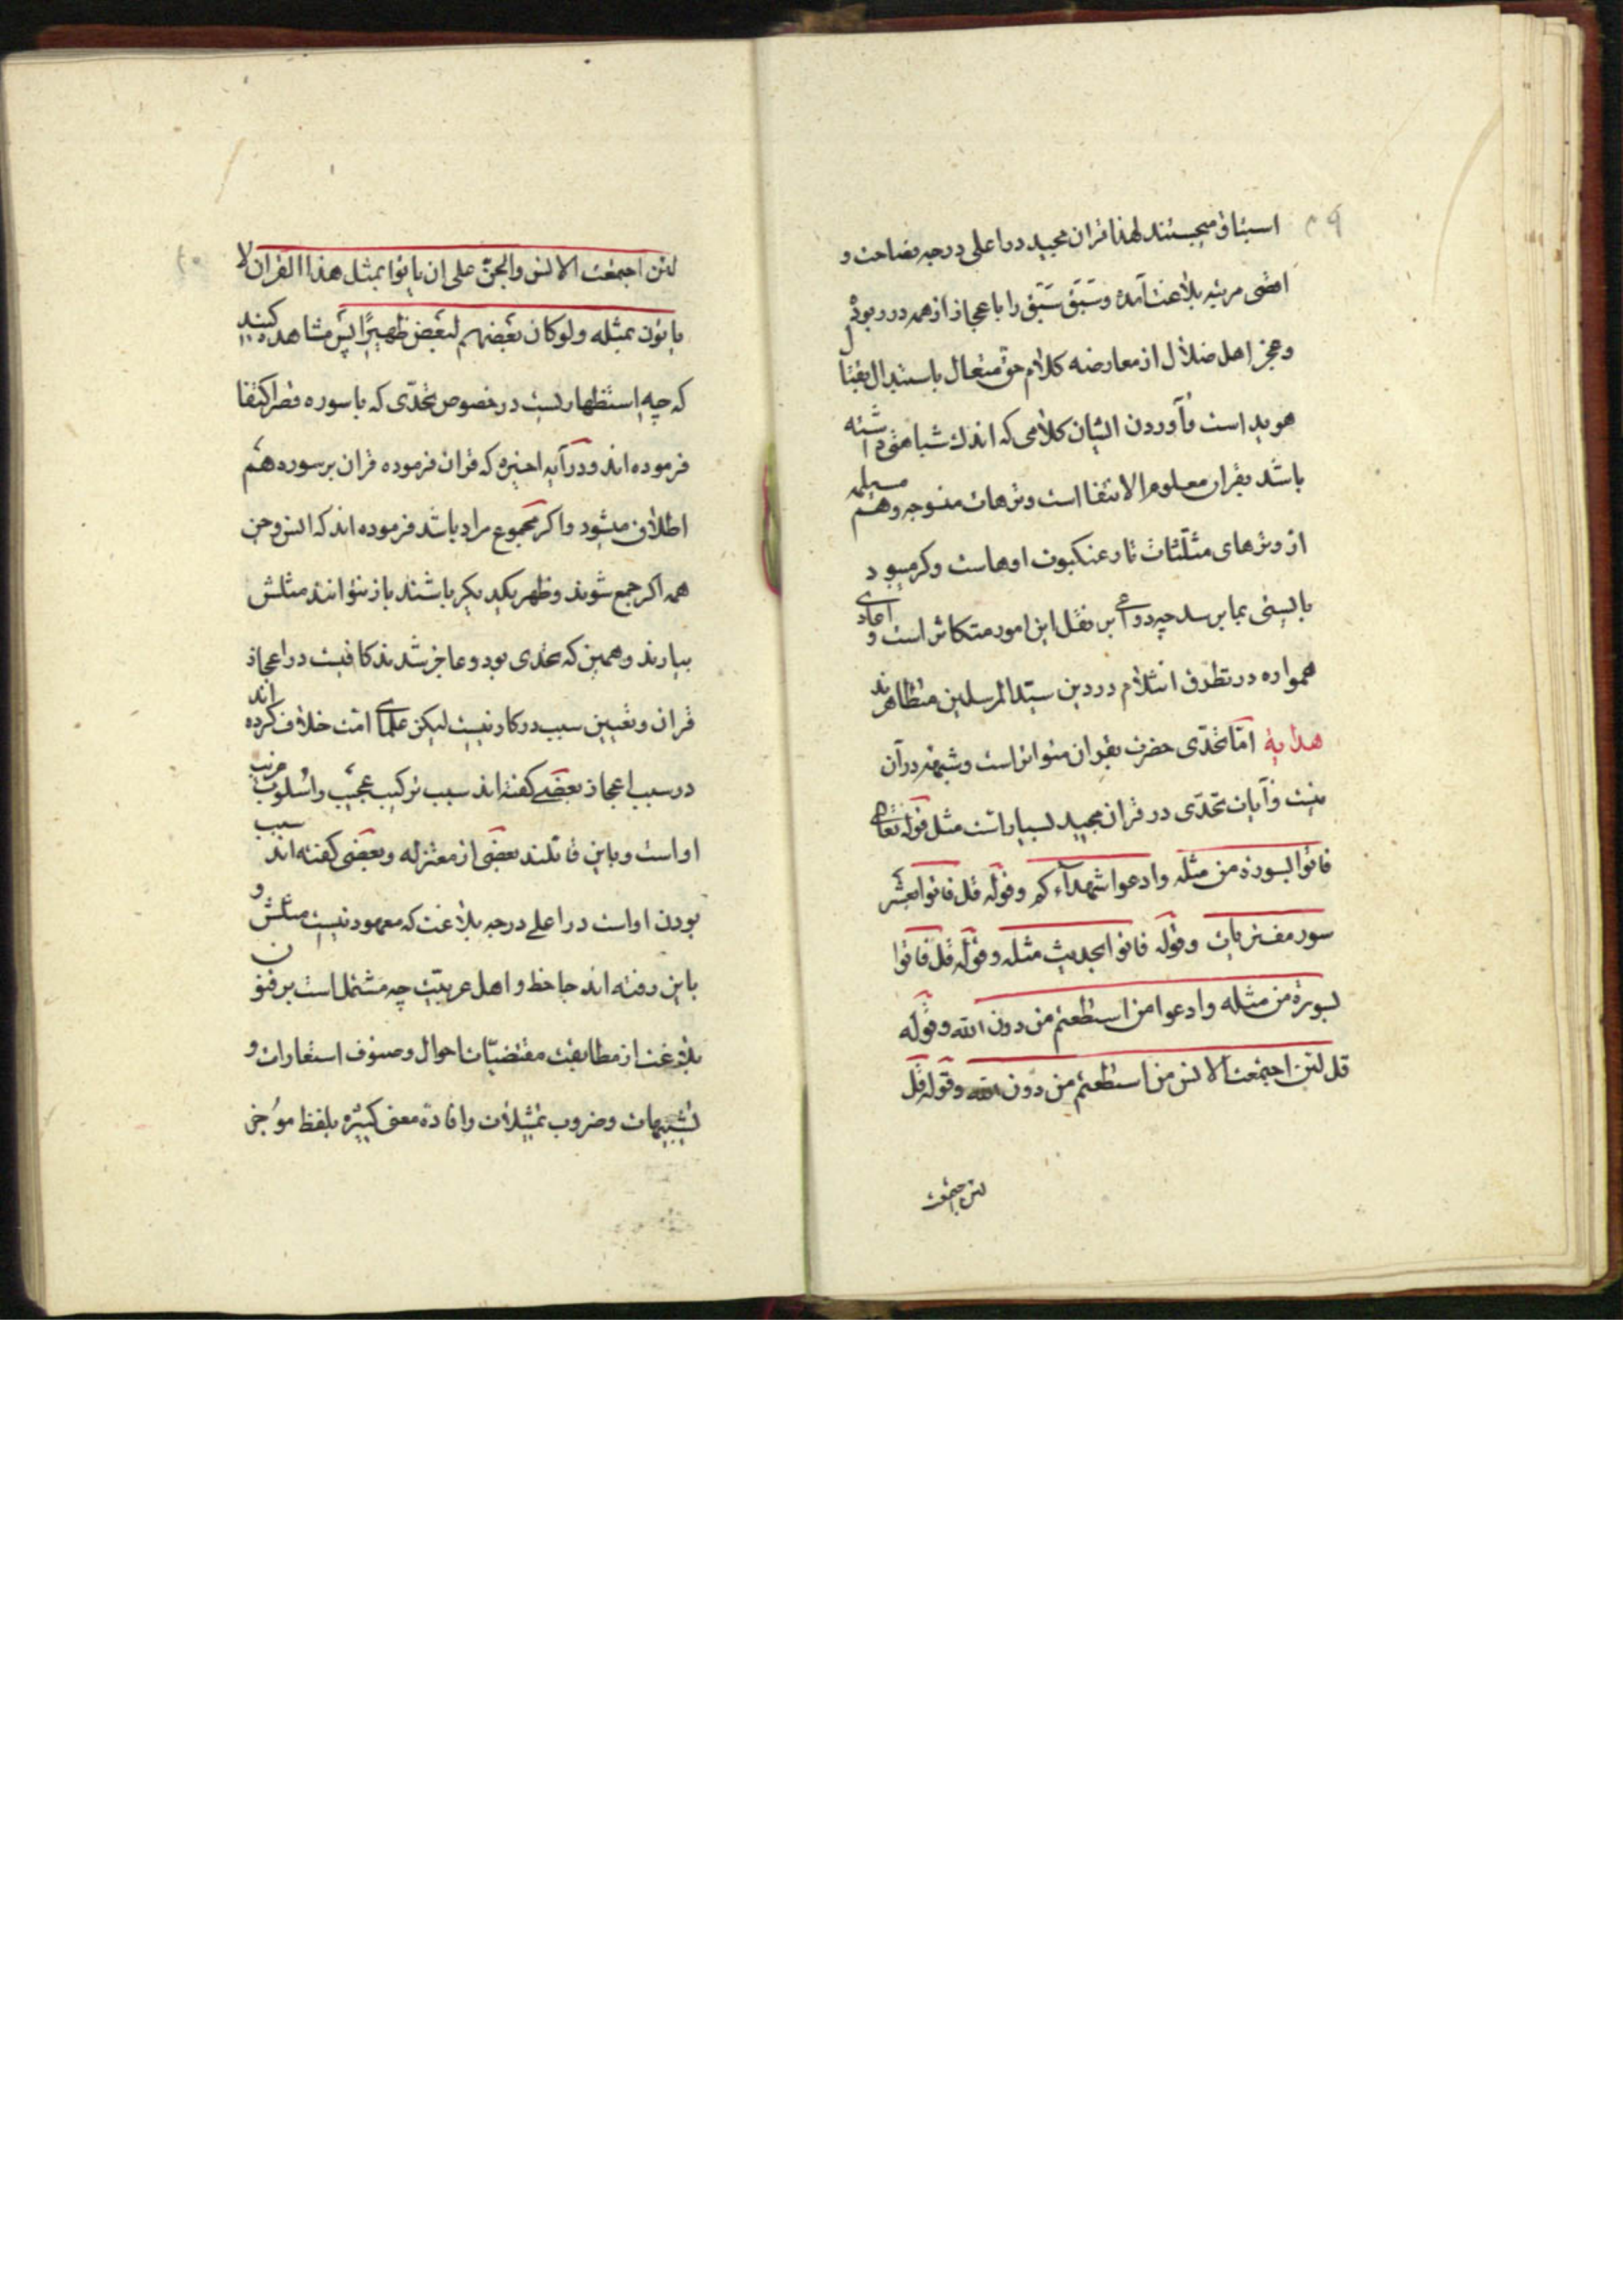 ۴۹
استباق میجستند لهذا قران مجید در اعلی درجه فصاحت و
اقصی مرتبه بلاغت آمده و سَبَق سَبَق را باعجاز از همه در ربوده
و عجز اهل ضلال از معارضه کلام حق متعال باستبدال
هویداست و آوردن ایشان کلامی که اندك شباهتی داشته
باشد بقران معلوم الانتفا است و ترهات مسیلمه
از وترهای مثلثات تار عنکبوت اوهاست و کر میبود
بایستی بما برسد چه دواعی بر نقل این امور متکاثر است و اعادی
همواره در تطرق انثلام در دین سیّد المرسلین متظاهرند
هدایة امّا تحدّی حضرت بقران متواتر است و شبهه در آن
نیست و آیات تحدّی در قران مجید بسیار است مثل قوله تعالی
فاتوا بسورة من مثله وادعوا شهداءکم وقوله قل فاتوا بعشر
سور مفتریات وقوله فاتوا بحدیث مثله وقوله قل فاتوا
بسورة من مثله وادعوا من استطعتم من دون الله وقوله
قل لئن اجتمعت الانس من استطعتم من دون الله وقوله قل
لئن اجتمعت
۵۰
لئن اجتمعت الانس والجنّ علی ان یاتوا بمثل هذا القران لا
یاتون بمثله ولو کان بعضهم لبعض ظهیرًا پس مشاهده کنید
که چه استظهار است در خصوص تحدّی که با سوره قصر اکتفا
فرموده اند و در آیه اخیره که قران فرموده قران بر سوره هم
اطلاق میشود و اکر مجموع مراد باشد فرموده اند که انس و جن
همه اکر جمع شوند و ظهر یکدیکر باشند باز نتوانند مثلش
بیارند و همین که تحدی بود و عاجز شدند کافیست در اعجاز
قران و تعیین سبب در کار نیست لیکن علمای امّت خلاف کرده اند
در سبب اعجاز بعضی کفته اند سبب ترکیب عجیب و اسلوب غریب
او است و باین قائلند بعضی از معتزله و بعضی کفته اند سبب
بودن او است در اعلی درجه بلاغت که معهود نیست مثلش و
باین رفته اند جاحظ و اهل عربیّت چه مشتمل است بر فنون
بلاغت از مطابقت مقتضیّات احوال و صنوف استعارات و
تشبیهات و ضروب تمثیلات و افاده معنی کثیره بلفظ موجز